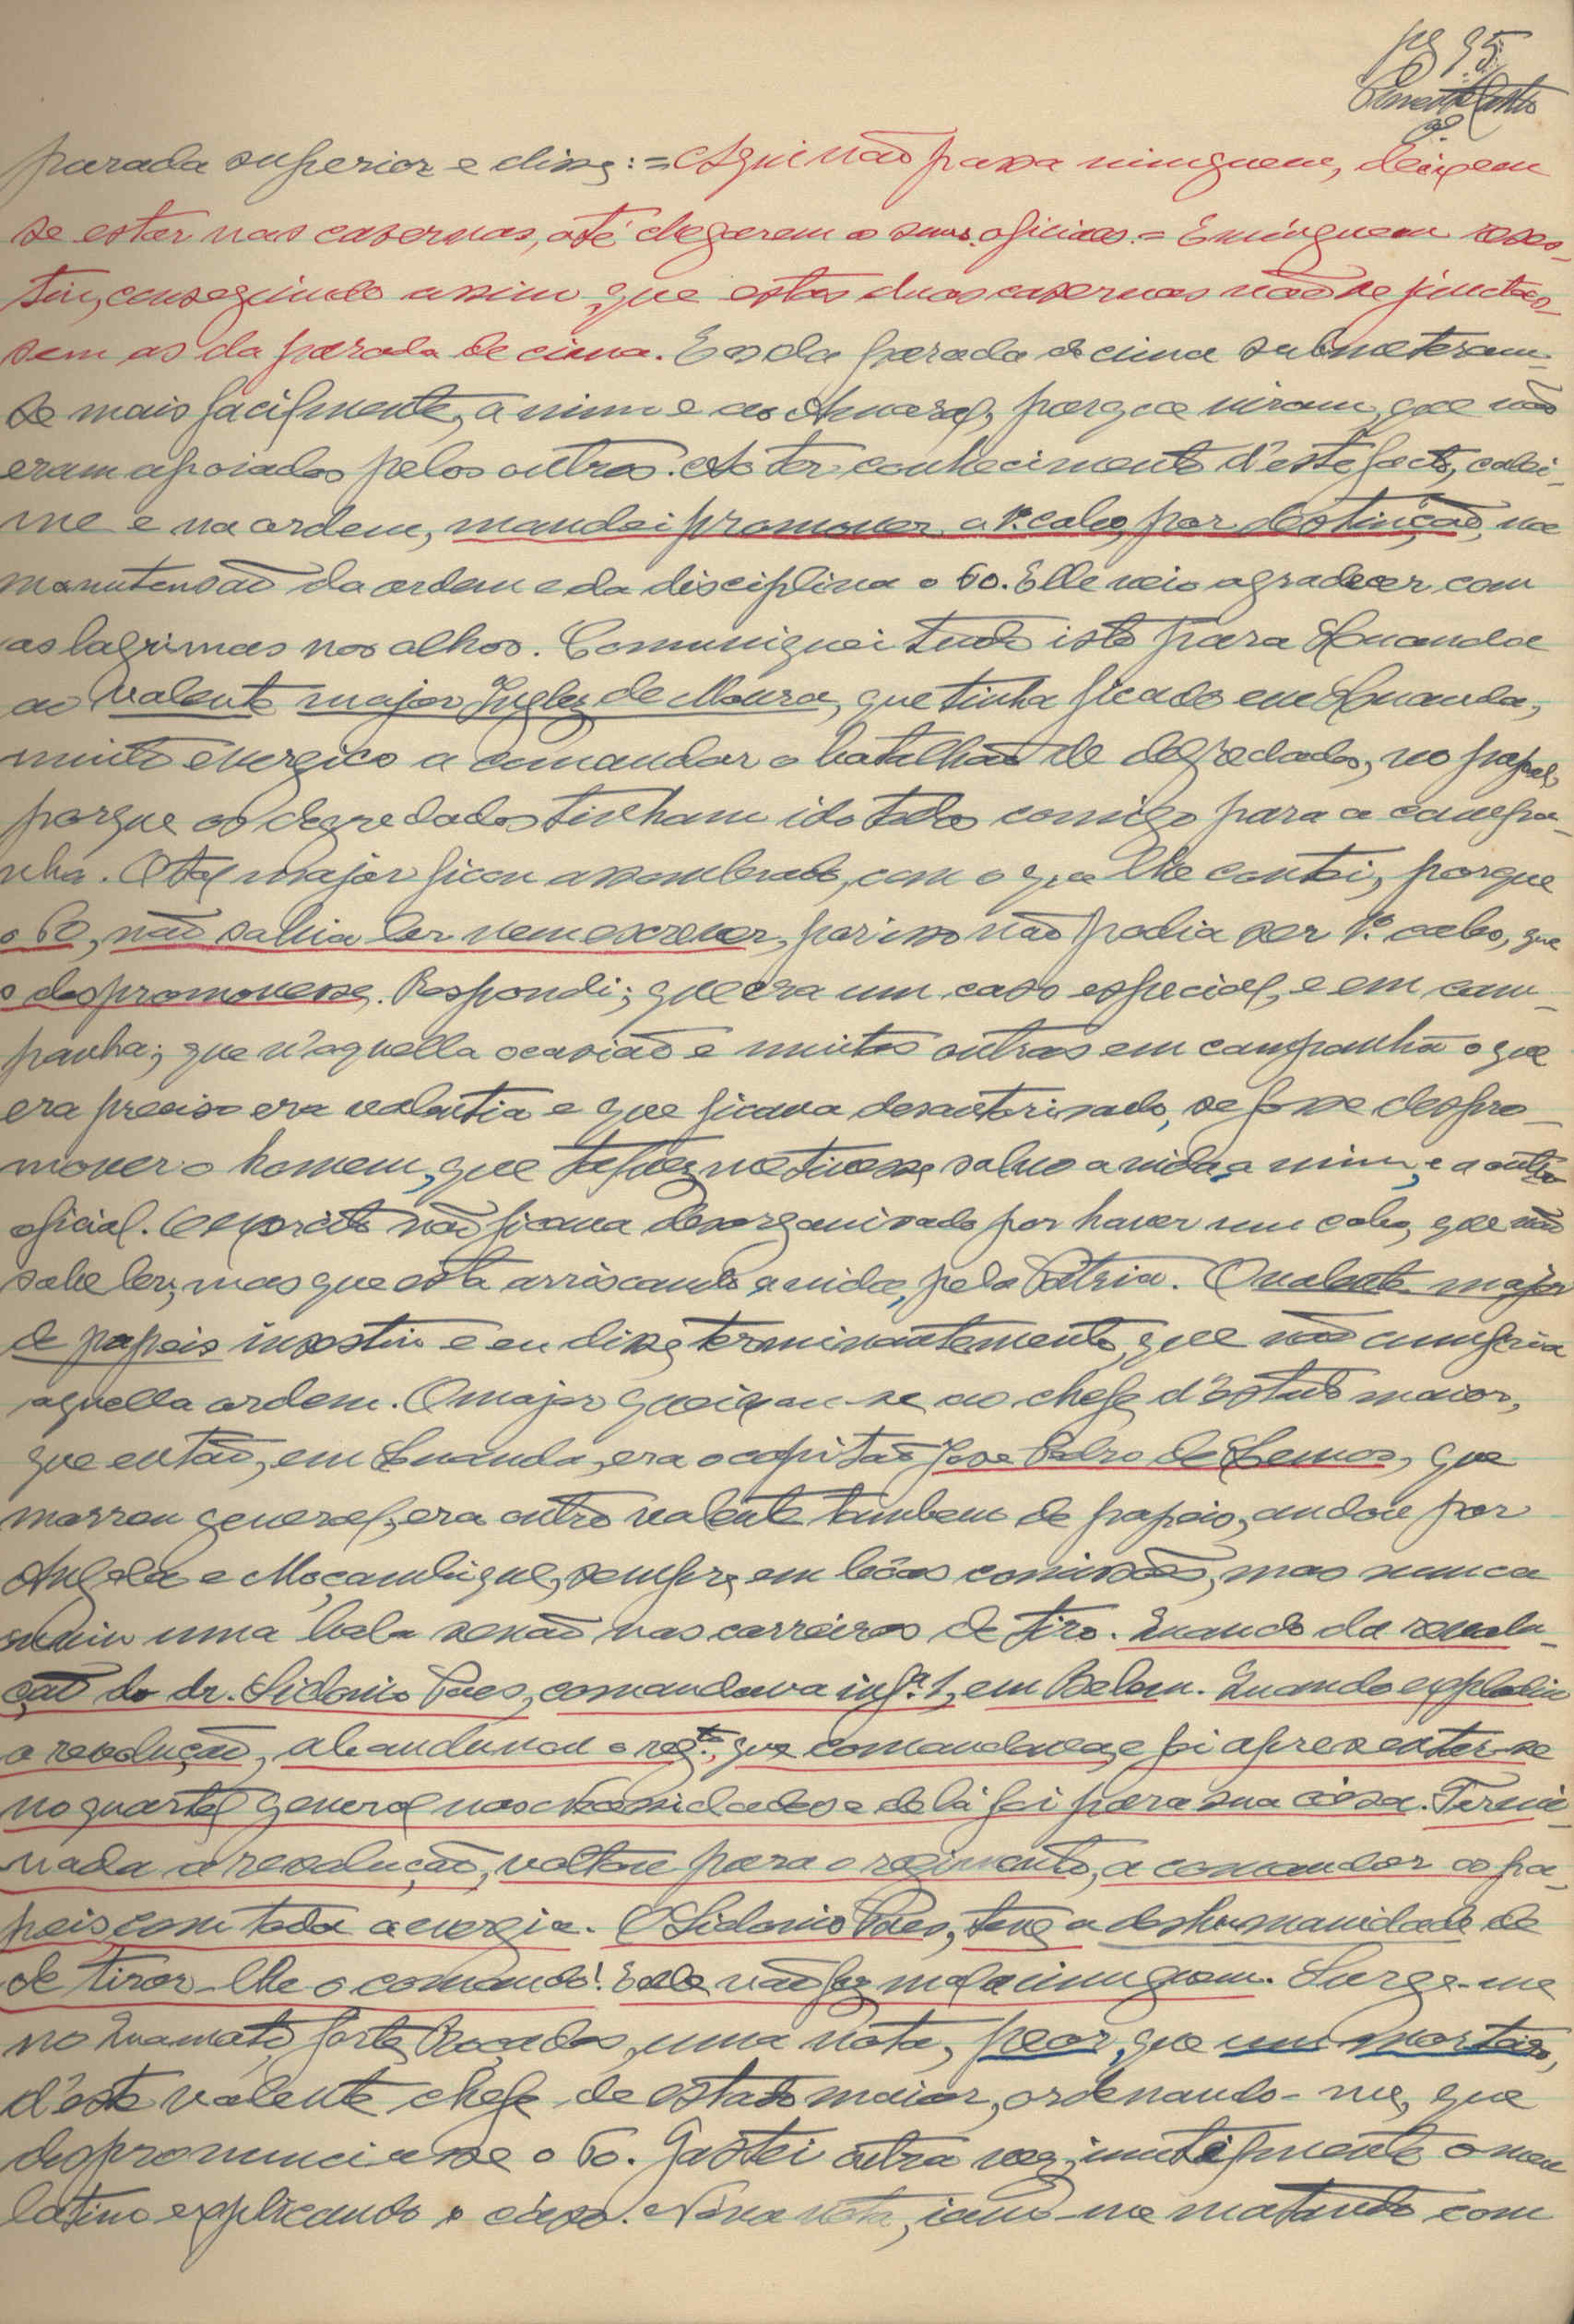 pg 95
parada superior e disse: = Aqui não passa ninguem, deixem
se estar nas casernas, até chegarem os seus oficiaes. = E ninguem resis-
tiu, conseguindo assim, que estas duas casernas não se juntas-
sem as da parada de cima. E os da parada de cima submeteram-
se mais facilmente, a mim e ao Amaral, porque viram, que não
eram apoiados pelos outros. Ao ter conhecimento d'este facto, calei-
me e na ordem, mandei promover a 1º. cabo, por destinção, na
manutensão da ordem e da disciplina o 60. Elle veio agradecer com
as lagrimas nos olhos. Comuniquei tudo isto para Luanda
ao valente major Inglez de Moura, que tinha ficado em Luanda,
muito energico a comandar o batalhão de degredados, no papel,
porque os degredados tinham ido todos comigo para a campa-
nha. O tal major ficou assombrado, com o que lhe contei, porque
o 60, não sabia ler nem escrever, por isso não podia ser 1º. cabo, que
o despromovesse. Respondi; que era um caso especial, e em cam-
panha; que n'aquella ocasião e muitas outras em campanha o que
era preciso era valentia e que ficava desautorisado, se fosse despro-
mover o homem, que talvez me tivesse salvo a vida, a mim, e a outro
oficial. O exercito não ficava desorganisado por haver um cabo, que não
sabe ler, mas que está arriscando a vida, pela Pátria. O valente major
de papeis insistiu e eu disse terminantemente, que não cumpria
aquella ordem. O major queixou-se ao chefe d'Estado maior,
que então, em Luanda, era o capitão José Pedro de Lemos, que
morreu general, era outro valente tambem de papeis, andou por
Angola e Moçambique, sempre em bôas comissões, mas nunca
ouviu uma bala senão nas carreiras de tiro. Quando da revolu-
ção do dr. Sidonio Paes, comandava infª. 1, em Belem. Quando explodiu
a revolução, abandunou o regtº., que comandava, e foi apresentar-se
no quartel general nas Necessidades e de lá foi para sua casa. Termi-
nada a revolução, voltou para o regimento, a comandar os pa-
peis, com toda a energia. O Sidonio Paes, teve a deshumanidade de
de tirar-lhe o comando! Elle não fez mal a ninguem. Surge-me
no Quamato, forte Roçadas, uma nota, peor, que um morteiro,
d'este valente chefe de estado maior, ordenando-me, que
despronunciasse o 60. Gastei outra vez, inutilmente o meu
latim explicando o caso. Nova nota, iam-me matando com